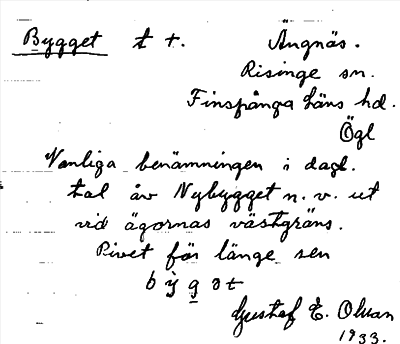 Bygget t t. Ängnäs.
Risinge sn.
Finspånga läns hd.
Ögl
Vanliga benämningen i dagl.
tal åv Nybygget n. v. ut
vid ägornas västgräns.
Rivet för länge sen
b y g ɔ t
Gustaf E. Olsson
1933.